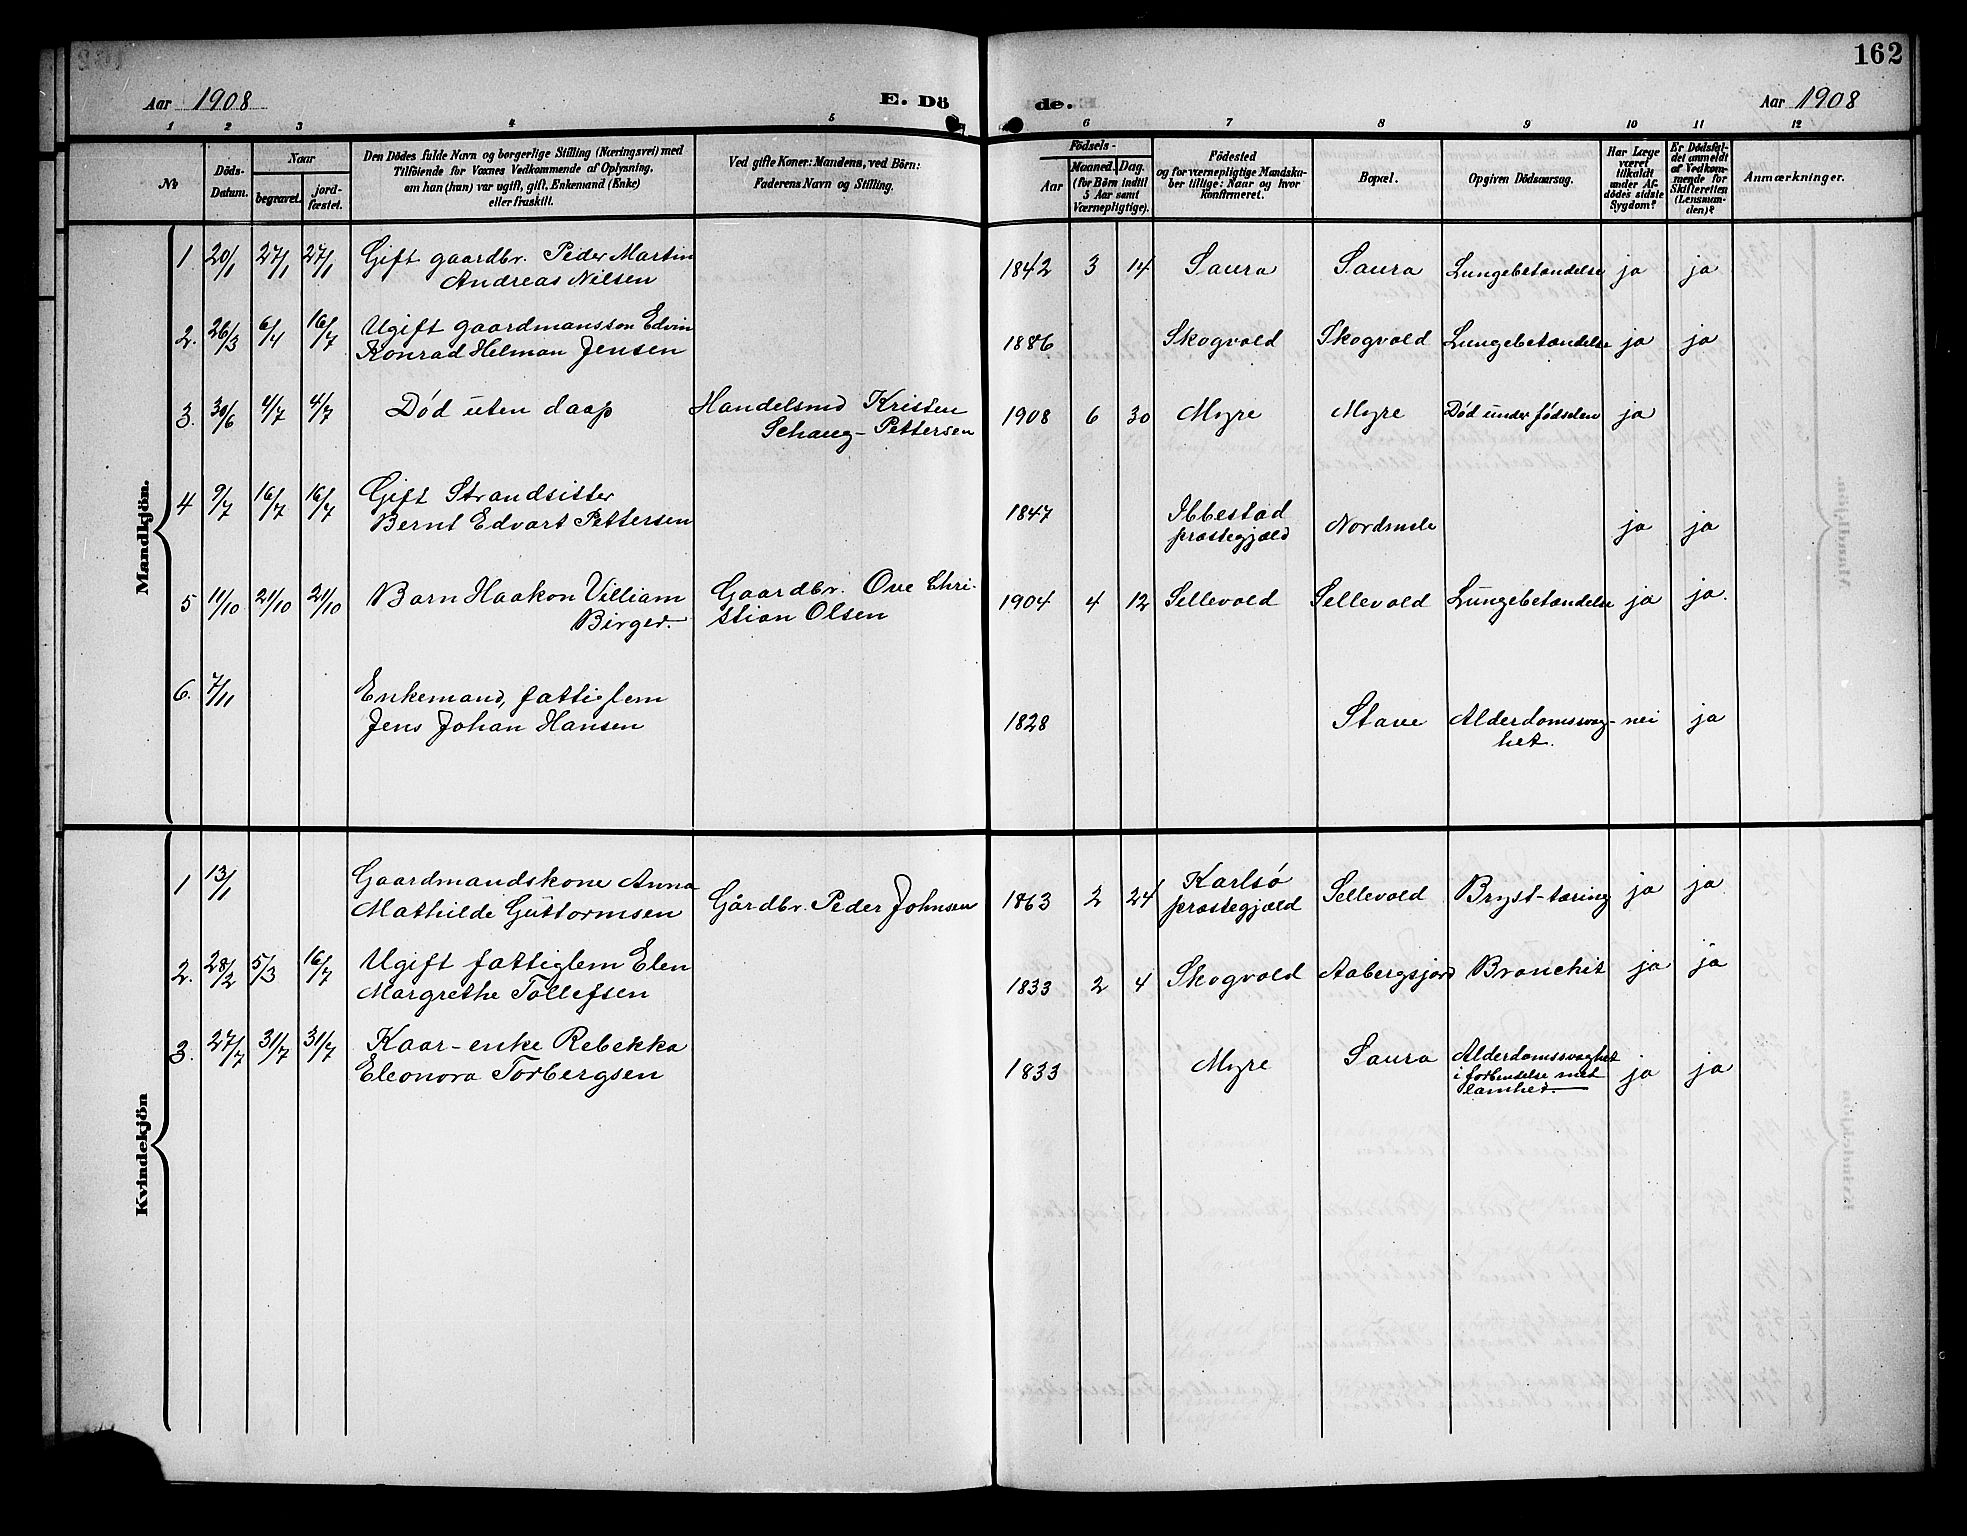 162
Aar 1908 E. Dö de. Aar 1908
1 2 3 4 5 6 7 8 9 10 11 12
No
Döds-
Datum.
Naar
begravet.
jord-
fæstet.
Den Dödes fulde Navn og borgerlige Stilling (Næringsvei) med
Tilföiende for Voxnes Vedkommende af Oplysning,
om han (hun) var ugift, gift, Enkemand (Enke)
eller fraskilt.
Ved gifte Koner: Mandens, ved Börn:
Faderens Navn og Stilling.
Födsels-
Aar
Maaned. Dag.
(for Börn indtil
5 Aar samt
Værnepligtige).
Födested
og for værnepligtige Mandska-
ber tillige: Naar og hvor
Konfirmeret.
Bopæl.
Opgiven Dödsaarsag.
Har Læge
været
tilkaldt
under Af-
dödes sidste
Sygdom?
Er Dödsfal-
det anmeldt
af Vedkom-
mende for
Skifteretten
(Lensman-
den)?
Anmærkninger.
Mandkjön.
1. 20/1 27/1 27/1 Gift gaardbr. Peder Martin
Andreas Nilsen
1842 3 14 Saura Saura Lungebetændelse ja ja
2. 26/3 6/4 16/7 Ugift gaardmansson Edvin
Konrad Helman Jensen
1886 Skogvold Skogvold Lungebetændelse ja ja
3. 30/6 4/7 4/7 Død uten daap Handelsmd Kristen
Schaug-Pettersen
1908 6 30 Myre Myre Død under fødselen ja
4 9/7 16/7 16/7 Gift Strandsitter
Bernt Edvart Pettersen
1847 Ibbestad
præstegjæld
Nordmele ja ja
5 11/10 21/10 21/10 Barn Haakon Villiam
Birger.
Gaardbr. Ove Chri-
stian Olsen
1904 4 12 Sellevold Sellevold Lungebetændelse ja ja.
6. 7/11 Enkemand, fattiglem
Jens Johan Hansen
1828 Stave Alderdomssvag-
het.
nei ja
Kvindekjön
1 13/1 Gaardmandskone Anna
Mathilde Guttormsen
Gårdbr. Peder Johnsen
1863 2 24 Karlsö
præstegjæld
Sellevold Bryst-tæring ja ja
2. 28/2 5/3 16/7 Ugift fattiglem Elen
Margrethe Tollefsen
1833 2 4 Skogvold Aabergsjord Bronchit ja ja
3. 27/7 31/7 31/7 Kaar-enke Rebekka
Eleonora Torbergsen
1833 Myre Saura Alderdomssvaghet
i forbindelse met
lamhet.
ja ja